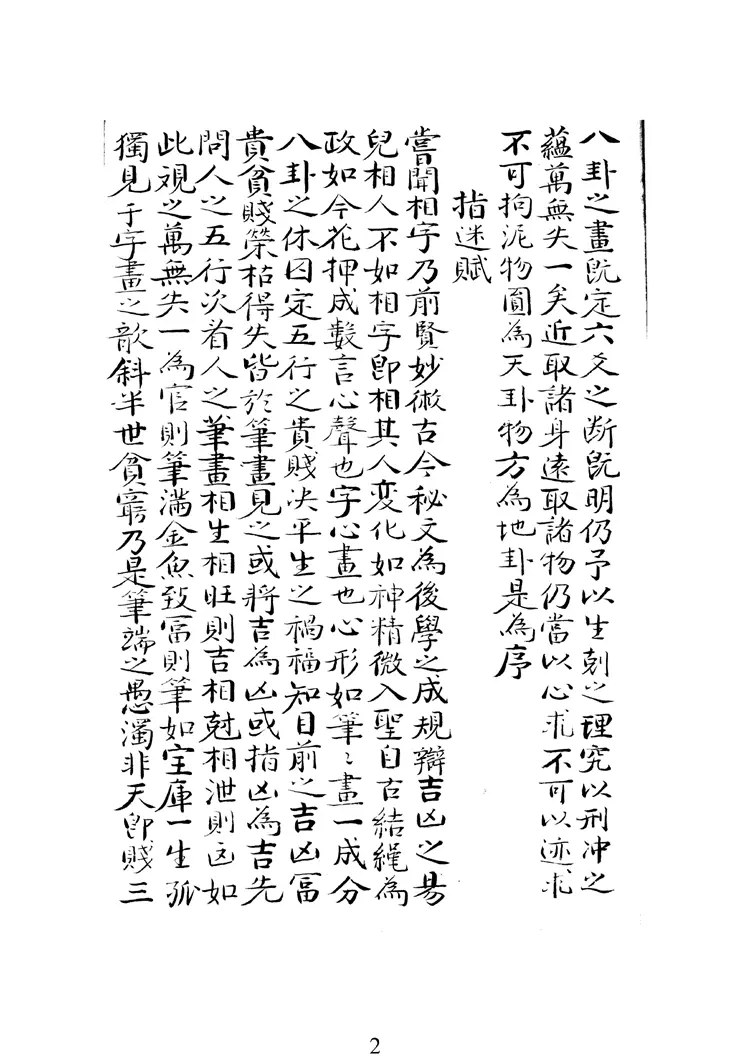 八卦之畫既定六爻之断既明仍予以生剋之理究以刑冲之
蘊萬無失一矣近取諸身遠取諸物仍當以心求不可以迹求
不可拘泥物圓為天卦物方為地卦是為序
指迷賦
嘗聞相字乃前賢妙術古今秘文為後學之成規辯吉凶之易
兒相人不如相字即相其人変化如神精微入聖自古結繩為
政如今花押成數言心聲也字心畫也心形如筆〻畫一成分
八卦之休囚定五行之貴賤决平生之禍福知目前之吉凶冨
貴貧賤榮枯得失皆於筆畫見之或將吉為凶或指凶為吉先
問人之五行次看人之筆畫相生相旺則吉相尅相泄則凶如
此視之萬無失一為官則筆滿金魚致冨則筆如宝庫一生孤
獨見于字畫之欹斜半世貧窮乃是筆端之愚濁非夭即賤三
2